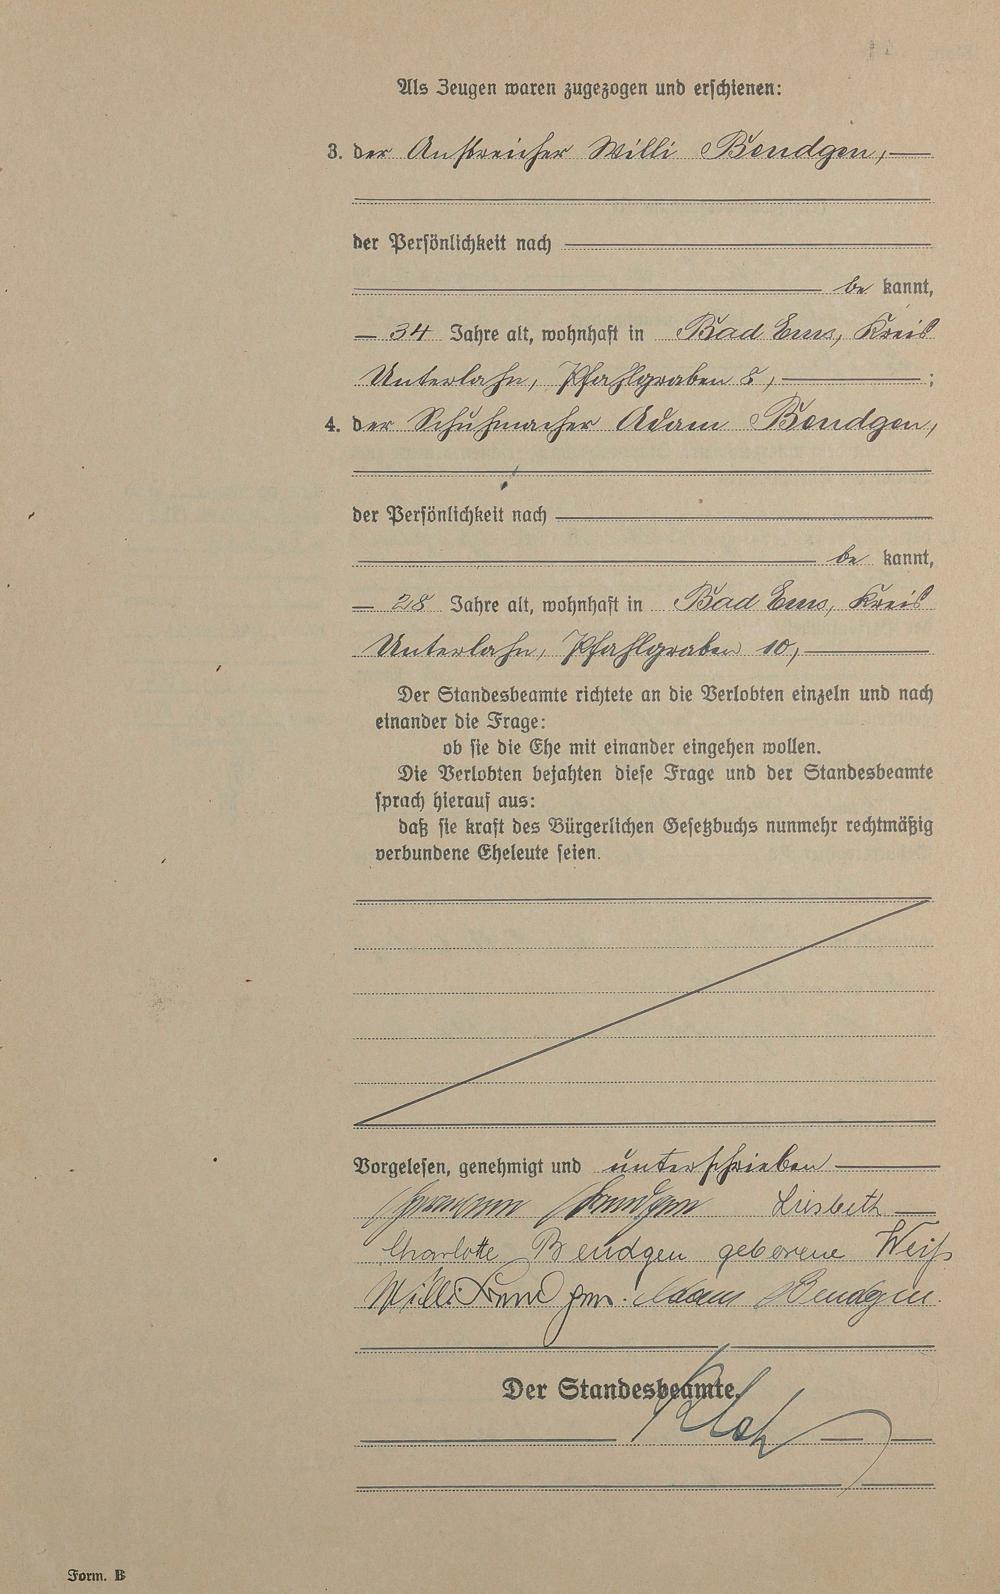 Als Zeugen waren zugezogen und erschienen:
3. der Anstreicher Willi Bendgen,
der Persönlichkeit nach
be kannt,
34 Jahre alt, wohnhaft in Bad Ems, Kreis
Unterlahn, Pfahlgraben 8, ;
4. der Schuhmacher Adam Bendgen,
der Persönlichkeit nach
be kannt,
28 Jahre alt, wohnhaft in Bad Ems, Kreis
Unterlahn, Pfahlgraben 10,
Der Standesbeamte richtete an die Verlobten einzeln und nach
einander die Frage:
ob sie die Ehe mit einander eingehen wollen.
Die Verlobten bejahten diese Frage und der Standesbeamte
sprach hierauf aus:
daß sie kraft des Bürgerlichen Gesetzbuchs nunmehr rechtmäßig
verbundene Eheleute seien.
Vorgelesen, genehmigt und unterschrieben
Hermann Bendgen Liesbeth
Charlotte Bendgen geborene Weiß
Willi Bendgen. Adam Bendgen.
Der Standesbeamte.
Form. B